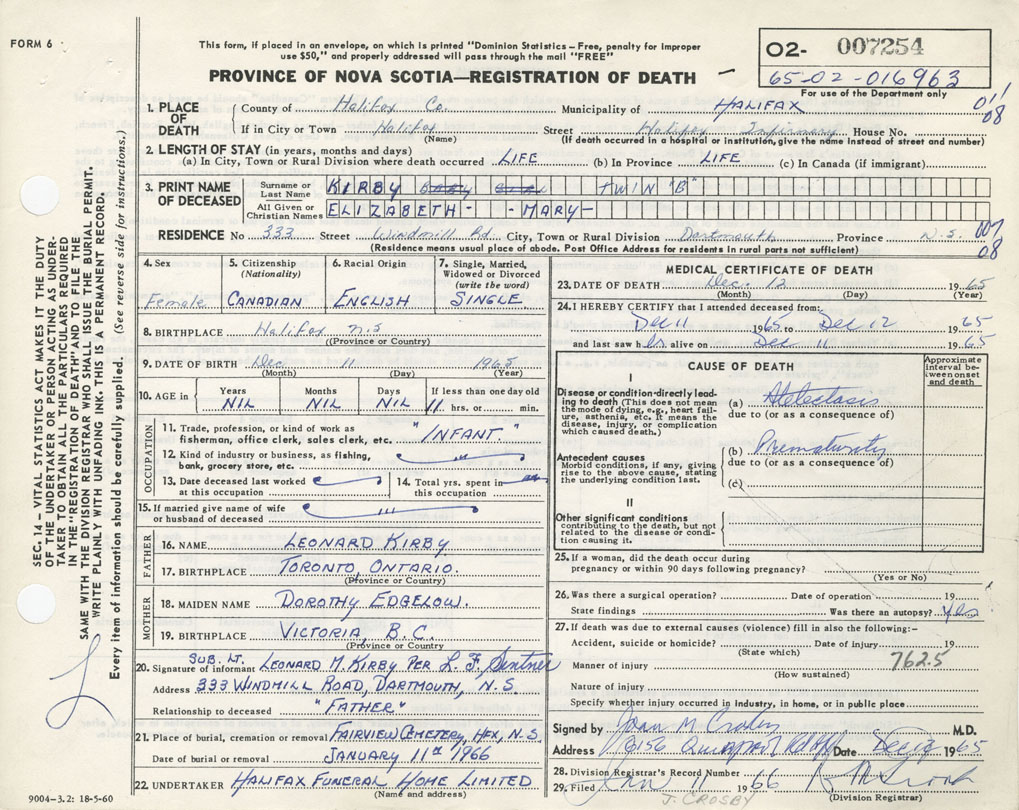 FORM 6
This form, if placed in an envelope, on which is printed "Dominion Statistics – Free, penalty for improper
use $50," and properly addressed will pass through the mail "FREE"
PROVINCE OF NOVA SCOTIA—REGISTRATION OF DEATH
02- 007254
65-02-016963
For use of the Department only
011
08
1. PLACE OF DEATH
County of Halifax Co. Municipality of HALIFAX
If in City or Town Halifax Street Halifax Infirmary House No.
(Name) (If death occurred in a hospital or institution, give the name instead of street and number)
2. LENGTH OF STAY (in years, months and days)
(a) In City, Town or Rural Division where death occurred LIFE (b) In Province LIFE (c) In Canada (if immigrant)
3. PRINT NAME OF DECEASED
Surname or Last Name KIRBY TWIN "B"
All Given or Christian Names ELIZABETH- -MARY-
RESIDENCE No 333 Street Windmill Rd. City, Town or Rural Division Dartmouth Province N.S.
007
08
(Residence means usual place of abode. Post Office Address for residents in rural parts not sufficient)
4. Sex
Female
5. Citizenship
(Nationality)
CANADIAN
6. Racial Origin
ENGLISH
7. Single, Married,
Widowed or Divorced
(write the word)
SINGLE
8. BIRTHPLACE Halifax N.S
((Province or Country)
9. DATE OF BIRTH Dec 11 1965
(Month) (Day) (Year)
10. AGE in
Years Months Days If less than one day old
NIL NIL NIL 11 hrs. or min.
OCCUPATION
11. Trade, profession, or kind of work as
fisherman, office clerk, sales clerk, etc. "INFANT."
12. Kind of industry or business, as fishing,
bank, grocery store, etc.
13. Date deceased last worked
at this occupation
14. Total yrs. spent in
this occupation
15. If married give name of wife
or husband of deceased
FATHER
16. NAME LEONARD KIRBY
17. BIRTHPLACE TORONTO, ONTARIO.
(Province or Country)
MOTHER
18. MAIDEN NAME DOROTHY EDGELOW.
19. BIRTHPLACE VICTORIA, B.C.
(Province or Country)
SUB. LT.
20. Signature of informant LEONARD M. KIRBY PER L. F. Sentner
Address 333 WINDMILL ROAD, DARTMOUTH, N.S
Relationship to deceased "FATHER"
21. Place of burial, cremation or removal FAIRVIEW CEMETERY, HFX, N.S.
Date of burial or removal JANUARY 11th 1966
22. UNDERTAKER HALIFAX FUNERAL HOME LIMITED
(Name and address)
9004-3.2: 18-5-60
MEDICAL CERTIFICATE OF DEATH
23. DATE OF DEATH Dec. 12 1965
(Month) (Day) (Year)
24. I HEREBY CERTIFY that I attended deceased from:
Dec 11 1965 to Dec 12 1965
and last saw h alive on Dec 11 1965
CAUSE OF DEATH
Approximate interval between onset and death
I
Disease or condition directly leading to death (This does not mean
the mode of dying, e.g., heart failure, asthenia, etc. It means the
disease, injury, or complication
which caused death.)
(a) Atelectasis
due to (or as a consequence of)
Antecedent causes
Morbid conditions, if any, giving
rise to the above cause, stating
the underlying condition last.
(b) Prematurity
due to (or as a consequence of)
(c)
II
Other significant conditions
contributing to the death, but not
related to the disease or condition causing it.
25. If a woman, did the death occur during
pregnancy or within 90 days following pregnancy?
(Yes or No)
26. Was there a surgical operation? Date of operation 19
State findings Was there an autopsy? Yes
27. If death was due to external causes (violence) fill in also the following:–
Accident, suicide or homicide? Date of injury 19
(State which)
7625
Manner of injury
(How sustained)
Nature of injury
Specify whether injury occurred in Industry, in home, or in public place
Signed by Joan M Crosby M.D.
Address 6156 Quinpool Rd Date Dec 13 1965
28. Division Registrar's Record Number
29. Filed Jan 11 1966
(Division Registrar)
J. CROSBY
SEC. 14 – VITAL STATISTICS ACT MAKES IT THE DUTY
OF THE UNDERTAKER OR PERSON ACTING AS UNDER-
TAKER TO OBTAIN ALL THE PARTICULARS REQUIRED
IN THE "REGISTRATION OF DEATH" AND TO FILE THE
SAME WITH THE DIVISION REGISTRAR WHO SHALL ISSUE THE BURIAL PERMIT.
WRITE PLAINLY WITH UNFADING INK. THIS IS A PERMANENT RECORD.
Every item of information should be carefully supplied. (See reverse side for instructions.)